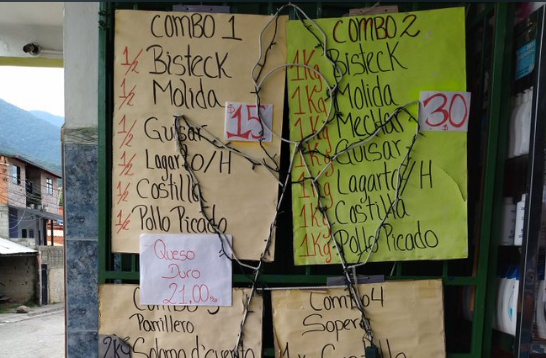 COMBO 1
1/2 Bisteck
1/2 Molida
1/2 Guisar
1/2 Lagarto/H
1/2 Costilla
1/2 Pollo Picado
15
COMBO 2
1Kg Bisteck
1Kg Molida
1Kg Mechar
1Kg Guisar
1Kg Lagarto H
1Kg Costilla
1Kg Pollo Picado
30
$
Queso
Duro
21,00
Combo 3
Parrillero
2Kg Solomo d'cuerito
Combo 4
Sopero